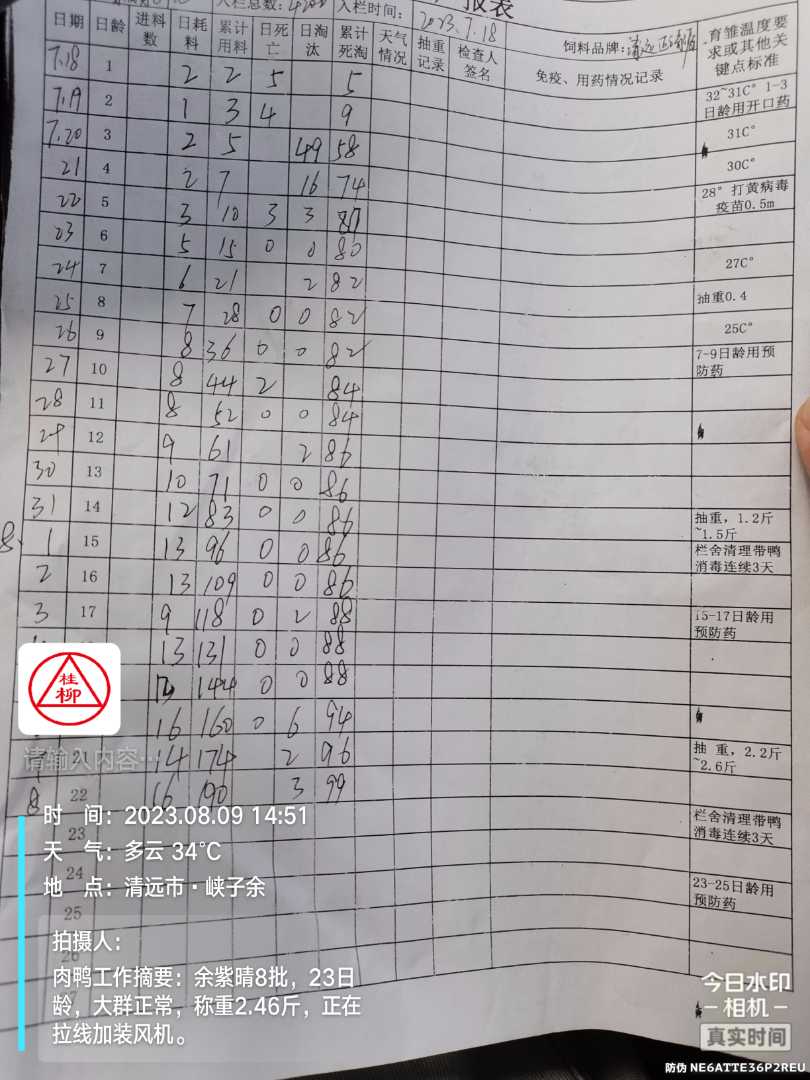 报表
入栏总数：4200 入栏时间：2023.7.18
日期 日龄 进料数 日耗料 累计用料 日死亡 日淘汰 累计死淘 天气情况 抽重记录 检查人签名 饲料品牌：清远 免疫、用药情况记录 育雏温度要求或其他关键点标准
7.18 1 2 2 5 5 32~31C° 1-3日龄用开口药
7.19 2 1 3 4 9
7.20 3 2 5 49 58 31C°
21 4 2 7 16 74 30C°
22 5 3 10 3 3 80 28° 打黄病毒疫苗0.5m
23 6 5 15 0 0 80
24 7 6 21 2 82 27C°
25 8 7 28 0 0 82 抽重0.4
26 9 8 36 0 0 82 25C°
27 10 8 44 2 84 7-9日龄用预防药
28 11 8 52 0 0 84
29 12 9 61 2 86
30 13 10 71 0 0 86
31 14 12 83 0 0 86 抽重，1.2斤~1.5斤
8、1 15 13 96 0 0 86 栏舍清理带鸭消毒连续3天
2 16 13 109 0 0 86
3 17 9 118 0 2 88 15-17日龄用预防药
13 131 0 0 88
13 144 0 0 88
16 160 0 6 94
21 14 174 2 96 抽 重，2.2斤~2.6斤
8 22 16 190 3 99
23 栏舍清理带鸭消毒连续3天
24
25 23-25日龄用预防药
26
桂柳
请输入内容…
时 间：2023.08.09 14:51
天 气：多云 34℃
地 点：清远市·峡子余
拍摄人：
肉鸭工作摘要：余紫晴8批，23日
龄，大群正常，称重2.46斤，正在
拉线加装风机。
今日水印
相机
真实时间
防伪 NE6ATTE36P2REU